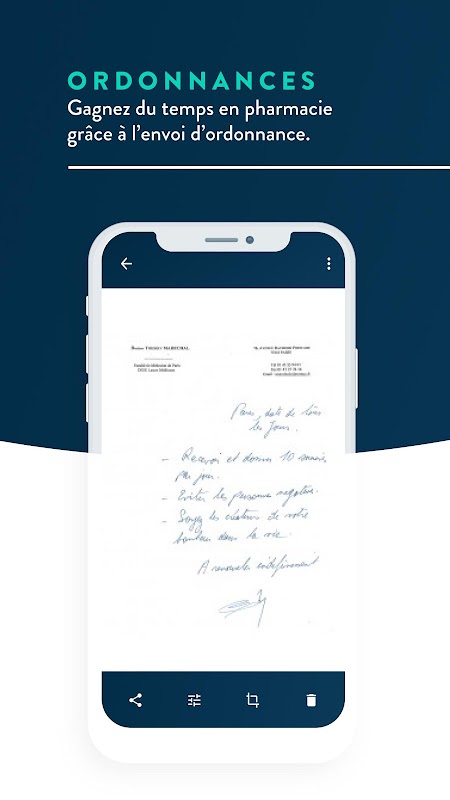 ORDONNANCES
Gagnez du temps en pharmacie
grâce à l'envoi d'ordonnance.
Docteur MARECHAL
Faculté de Médecine de Paris
75116 PARIS
Paris, date de tous
les jours.
- Recevoir et donner 10 sourires
par jour.
- Eviter les personnes négatives.
- Soyez les créateurs de votre
bonheur dans la vie.
A renouveler indéfiniment